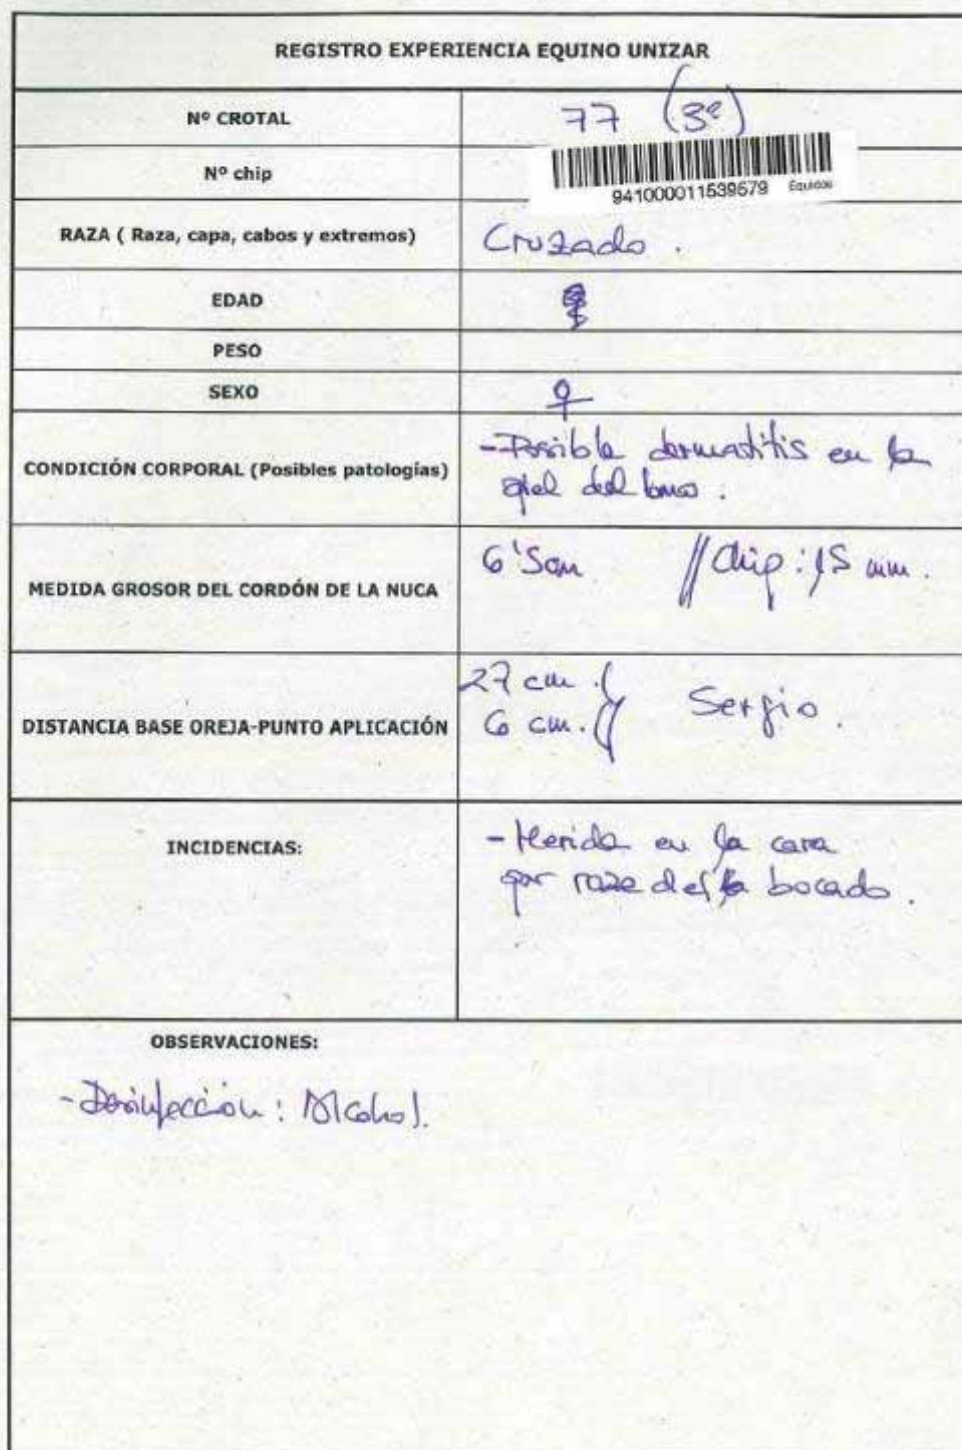 REGISTRO EXPERIENCIA EQUINO UNIZAR
Nº CROTAL 77 (3º)
Nº chip 941000011539579 Équidos
RAZA ( Raza, capa, cabos y extremos) Cruzado.
EDAD
PESO
SEXO ♀
CONDICIÓN CORPORAL (Posibles patologías) -Posible dermatitis en la
piel del lomo.
MEDIDA GROSOR DEL CORDÓN DE LA NUCA 6'5cm // Chip: 15 mm.
27 cm. //
DISTANCIA BASE OREJA-PUNTO APLICACIÓN 6 cm. // Sergio.
INCIDENCIAS: - Herida en la cara
por roze del bocado.
OBSERVACIONES:
- Desinfección: Alcohol.